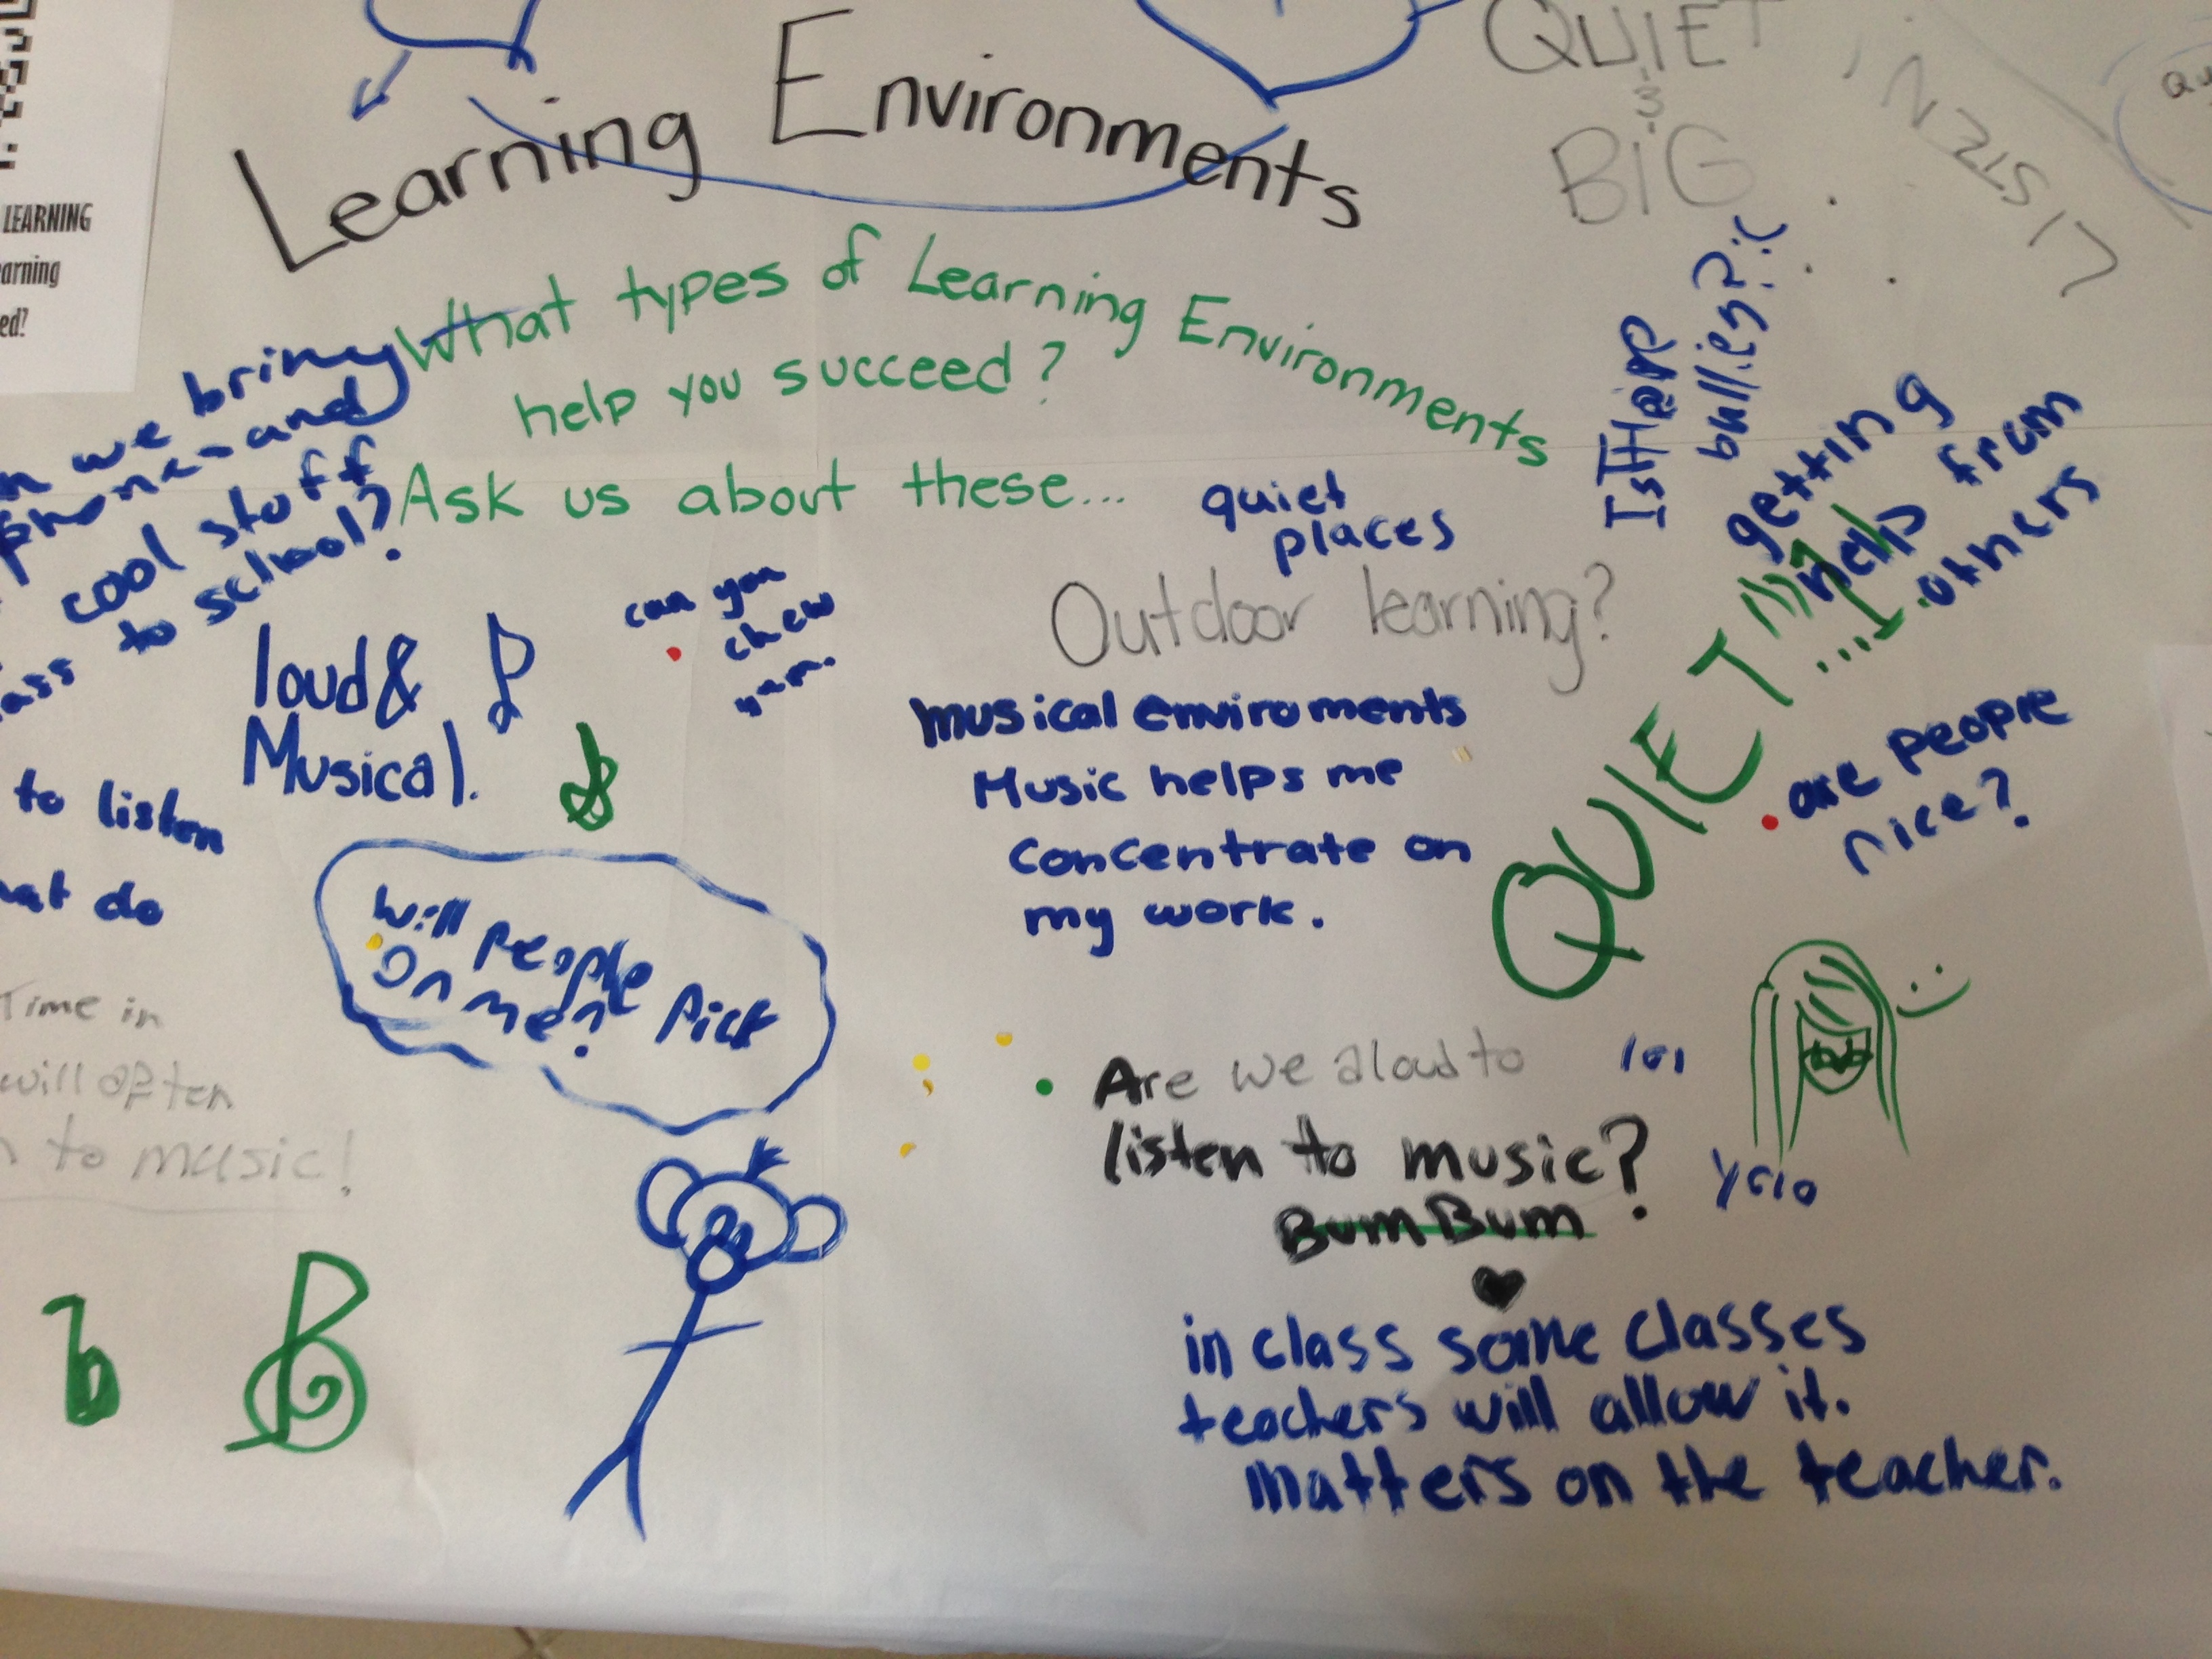 LEARNING
arning
ed?
Learning Environments
QUIET
&
BIG
What types of Learning Environments
help you succeed?
Ask us about these...
we bring
phone and
cool stuff
to school?
ass
loud &
Musical.
can you
chew
to listen
do
quiet
places
Outdoor learning?
musical enviroments
Music helps me
concentrate on
my work.
bullies?:(
getting
help from
others
QUIET
are people
nice?
will people pick
on me?
Time in
will often
to music!
Are we aloud to
listen to music?
BumBum
lol
in class some classes
teachers will allow it.
matters on the teacher.